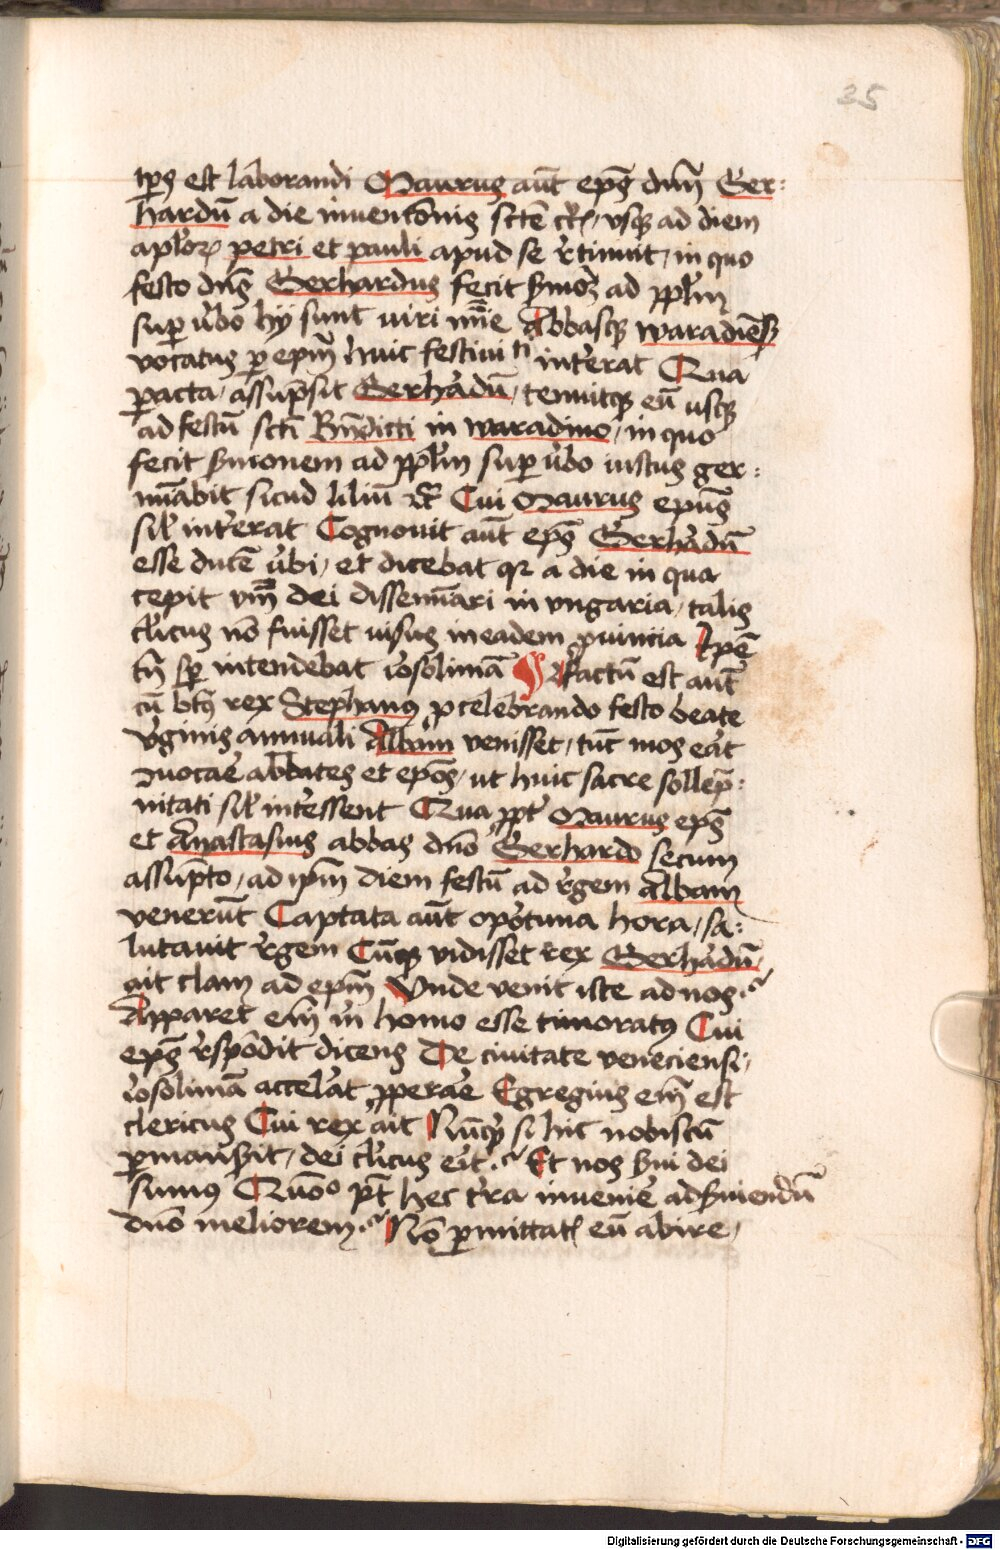 35
tp̄s est laborandi Maurus aūt ep̄s dn̄m Ger:
hardū a die inventōnis sctē cr̄c, usq̨ ad diem
apl̄oꝝ petri et pauli apud se r̄tinuit, in quo
festo dn̄s Gerhardus fecit s̄moꝫ ad ppl̄m
sup ūbo hÿ sunt uiri mīe Abbasq̨ waradiēs̄
vocatus p ep̄m huic festiuiti int̄erat Qua
pacta, assūpsit Gerhādū, tenuitq̨ eū usq̨
ad festū sctī Bn̄dicti in waradino, in quo
fecit s̄monem ad ppl̄m sup ūbo iustus ger:
mīabit sicud liliū ꝛc̄ Cui Maurus epūs
sil̄ int̄erat Cognouit aūt ep̄s Gerhādū
esse ducē ūbi, et dicebat qꝛ a die in qua
cepit vm̄ dei dissemīari in vngaria, talis
cl̄icus nō fuisset uisus in eadem ꝓuincia Ip̄e
tn̄ sp̄ intendebat iēosolimā ¶ Factū est aūt
cū bt̄us rex Stephanus ꝓ celebrando festo beate
v̄ginis annuali Albam venisset, tūc mos eāt
ꝯuocāe abbates et ep̄os, ut huic sacre sollēp:
nitati sil̄ int̄essent Qua ꝓpt̄ Maurus ep̄s
et Anastasius abbas dn̄o Gerhardo secum
assūpto, ad ip̄m diem festū ad r̄gem Albam
venerūt Captata aūt opōtuna hora, sa:
lutauit r̄gem Cūq̨ vidisset rex Gerhādū,
ait clam ad ep̄m Unde venit iste ad nos?
Apparet em̄ in homo esse timoratus Cui
ep̄s r̄spōdit dicens De ciuitate veneciensi,
iēosolimā accelāt ꝓperāe Egregius em̄ est
clericus Cui rex ait Nūq̨ si hic nobiscū
pmans̄it, dei cl̄icus eīt? Et nos s̄ui dei
sumus Quōo pt̄ hec t̄ra inuenīe ads̄uiendū
dn̄o meliorem? Nō pmittatis eū abire,
Digitalisierung gefördert durch die Deutsche Forschungsgemeinschaft - DFG